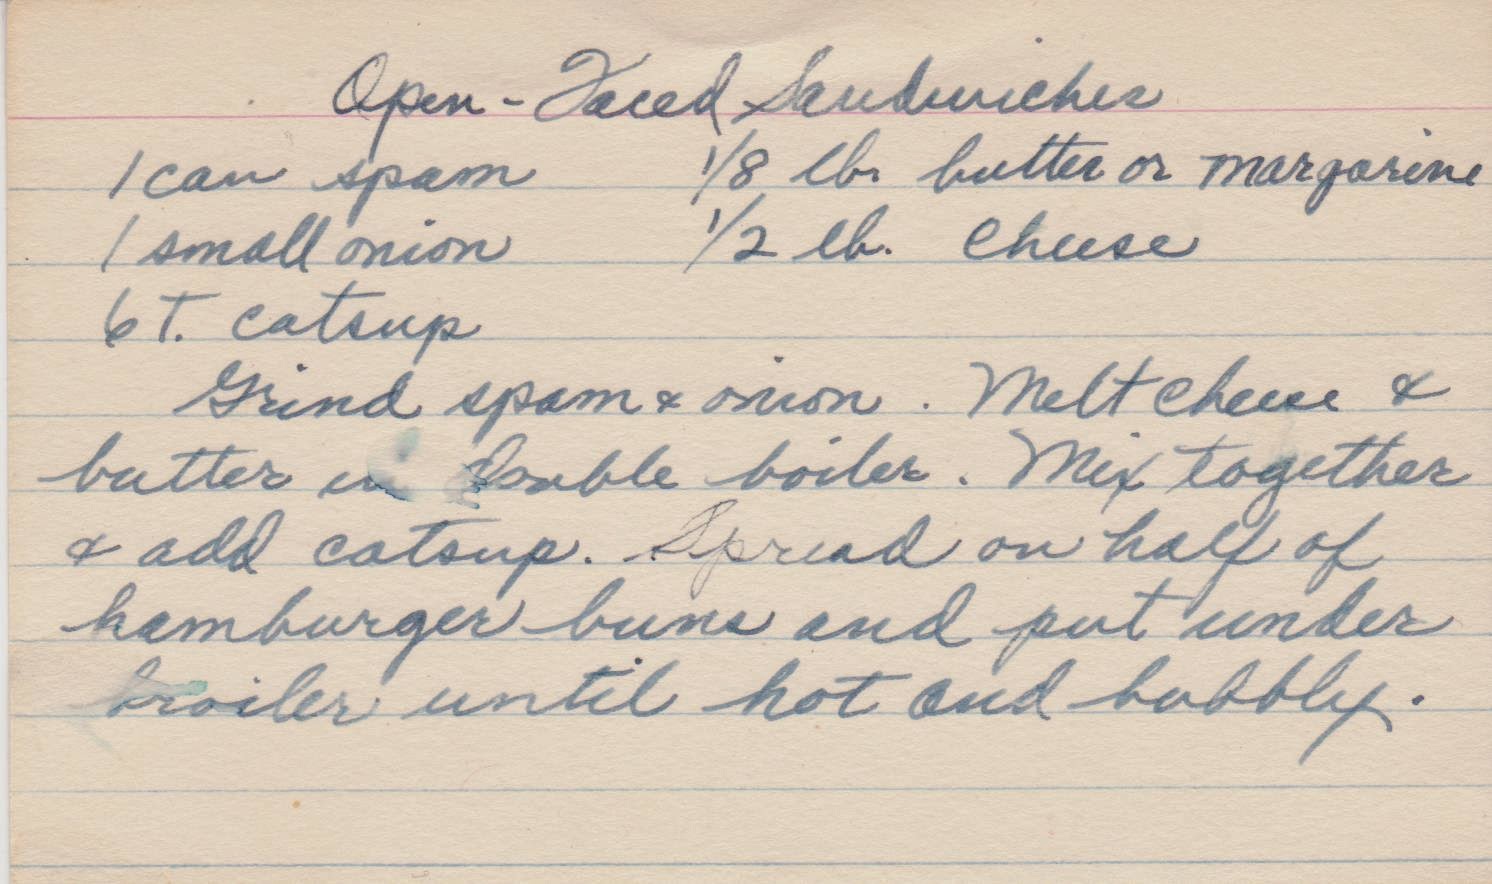 Open-Faced Sandwiches
1 can spam 1/8 lb. butter or margarine
1 small onion 1/2 lb. cheese
6 T. catsup
Grind spam & onion. Melt cheese &
butter in double boiler. Mix together
& add catsup. Spread on half of
hamburger buns and put under
broiler until hot and bubbly.